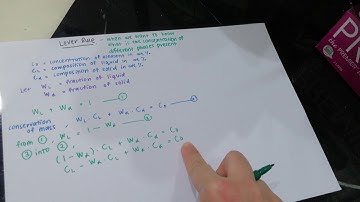 Lever Rule - when we want to know
what is the concentration of
different phases present
C₀ = concentration of element in wt%
C_L = composition of liquid in wt%
C_α = composition of solid in wt%
Let W_L = fraction of liquid
W_α = fraction of solid
W_L + W_α = 1 — ①
conservation of mass, W_L C_L + W_α . C_α = C₀ — ②
from ①, W_L = 1 - W_α — ③
③ into ②,
(1-W_α) . C_L + W_α . C_α = C₀
C_L - W_α . C_L + W_α . C_α = C₀